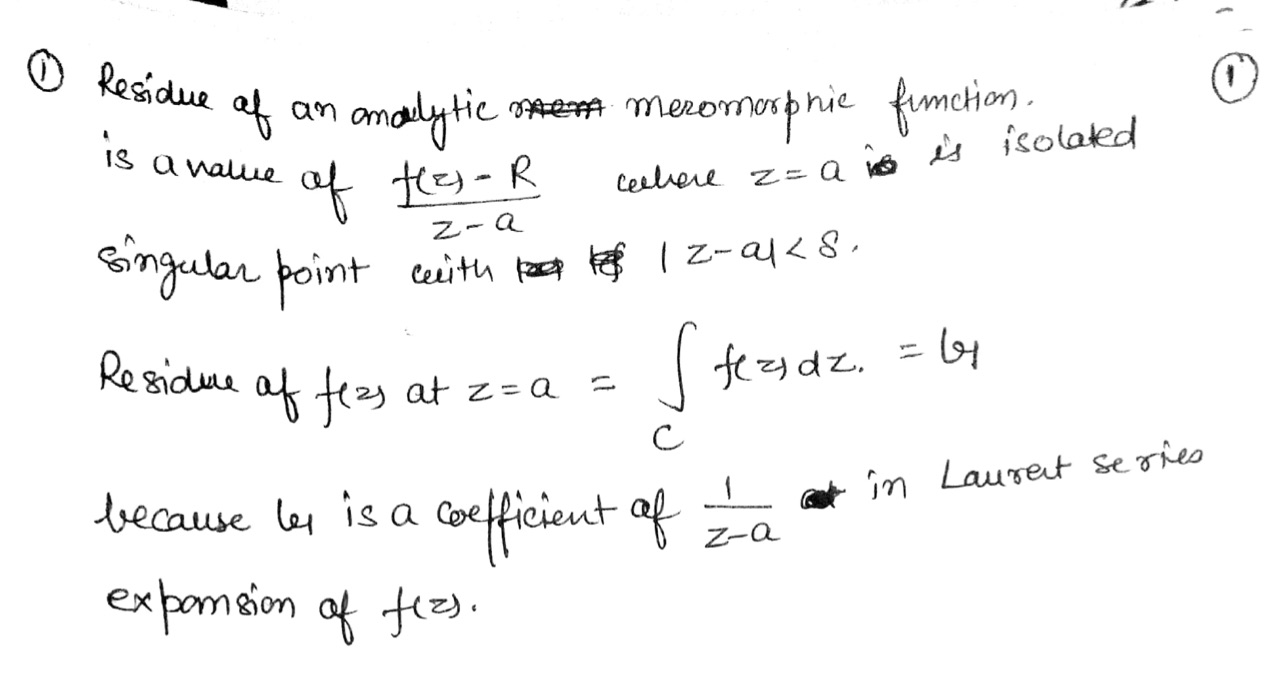 ① Residue of an analytic meromorphic function. ①
is a value of f(z) - R / z - a where z = a is isolated
singular point with |z-a| < δ.
Residue of f(z) at z = a = ∫_C f(z) dz. = b₁
because b₁ is a coefficient of 1/z-a in Laurent series
expansion of f(z).